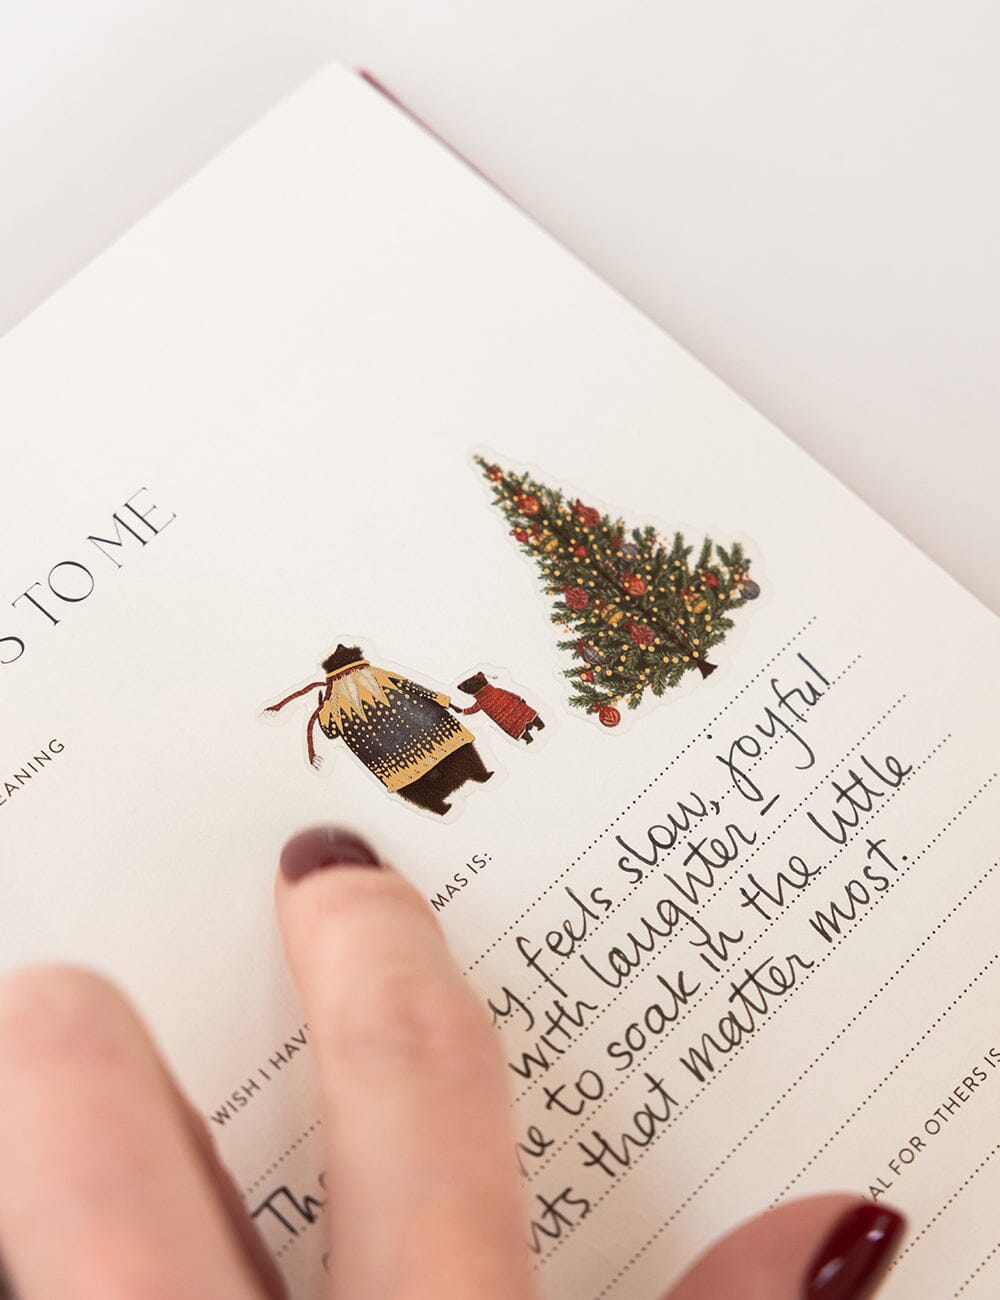 S TO ME
EANING
WISH I HAV
MAS IS:
Th
y feels slow, joyful
with laughter –
e to soak in the little
nts that matter most.
AL FOR OTHERS IS